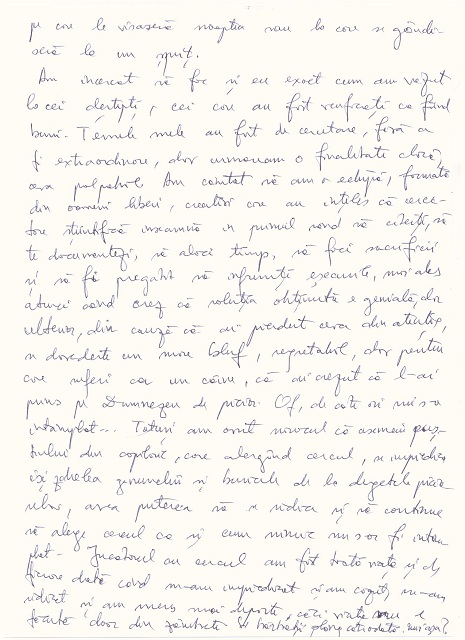 pe care le visaseră noaptea sau la care se gândi-
seră la un șpriț.
Am încercat să fac și eu exact cum am văzut
la cei deștepți, cei care au fost verificați ca fiind
buni. Temele mele au fost de cercetare, fără a
fi extraordinare, dar urmăream o finalitate clară,
ceva palpabil. Am căutat să am o echipă, formată
din oameni liberi, creativi care au înțeles că cerce-
tare științifică înseamnă în primul rând să citești, să
te documentezi, să aloci timp, să faci sacrificii
și să fii pregătit să înfrunți eșecurile, mai ales
atunci când crezi că soluția obținută e genială, dar
ulterior, din cauză că ai pierdut ceva din atenție,
se dovedește un mare bluf, regretabil, dar pentru
care suferi ca un câine, că ai crezut că l-ai
prins pe Dumnezeu de picior. Of, de câte ori mi s-a
întâmplat... Totuși am avut norocul că asemeni
din copilărie, care alergând cercul, se împiedica
își zdrelea genunchii și buricele de la degetele picioa-
relor, avea puterea să se ridice și să continue
să alerge cercul ca și cum nimic nu s-ar fi întâm-
plat. Jucătorul cu cercul am fost toată viața și de
fiecare dată când m-am împiedicat și am căzut, m-am
ridicat și am mers mai departe, căci viața nu e
făcută doar din zâmbete și bărbații plâng câteodată, nu-i așa?